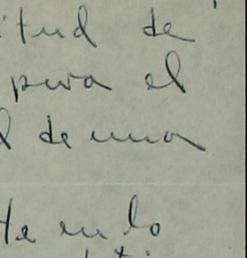 itud de
para el
l de una
te en lo